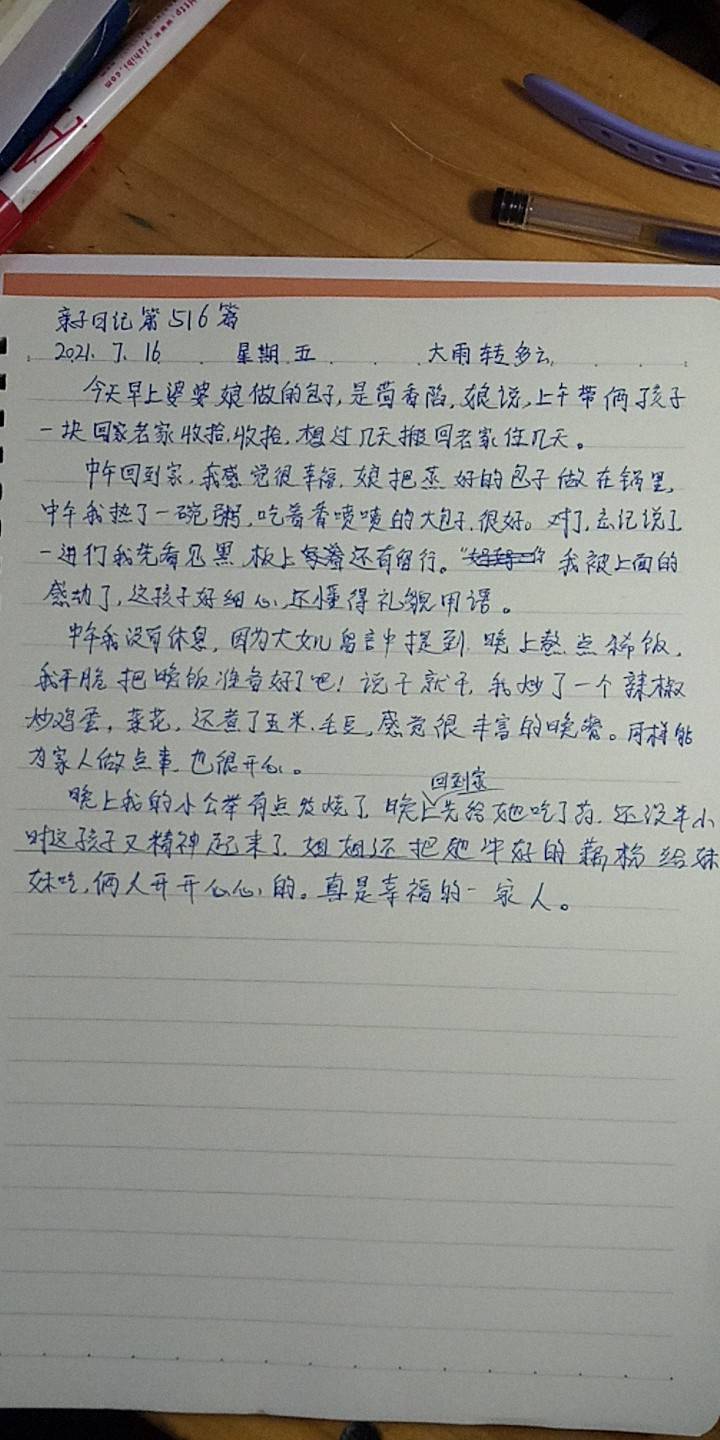 http://www.yizhibi.com
亲子日记第516篇
2021.7.16 星期五 大雨转多云
今天早上婆婆娘做的包子,是茴香陷,娘说,上午带俩孩子
一块回家老家收拾,收拾,想过几天搬回老家住几天。
中午回到家,我感觉很幸福,娘把蒸好的包子做在锅里,
中午我热了一碗粥,吃着香喷喷的大包子,很好。对了,忘记说了
一进门我先看见黑板上写着还有留行。“ 我被上面的
感动了,这孩子好细心,还懂得礼貌用语。
中午我没有休息,因为大女儿留言中提到,晚上熬点稀饭,
我干脆把晚饭准备好了吧!说干就干,我炒了一个辣椒
炒鸡蛋,菜花,还煮了玉米,毛豆,感觉很丰富的晚餐。同样能
为家人做点事,也很开心。
回到家
晚上我的小公举有点发烧了,晚上先给她吃了药,还没半小
时这孩子又精神起来了,姐姐还把她冲好的藕粉给妹
妹吃,俩人开开心心的。真是幸福的一家人。